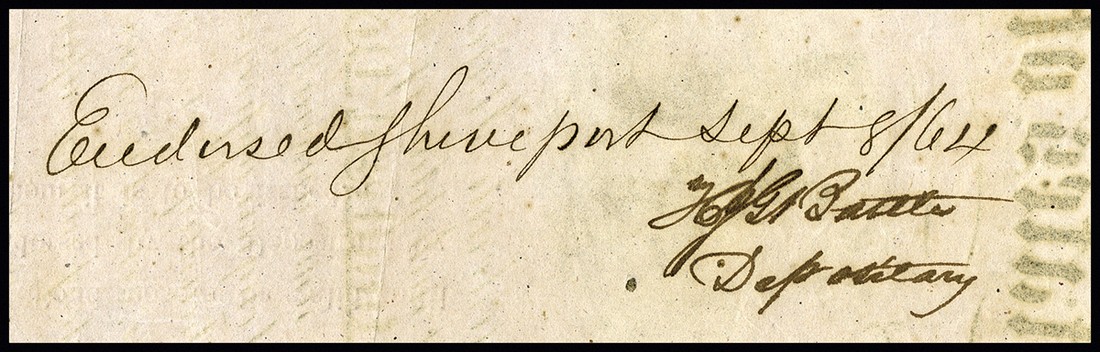 Endorsed Shreveport Sept 8/64
H J G Battle
Depositary